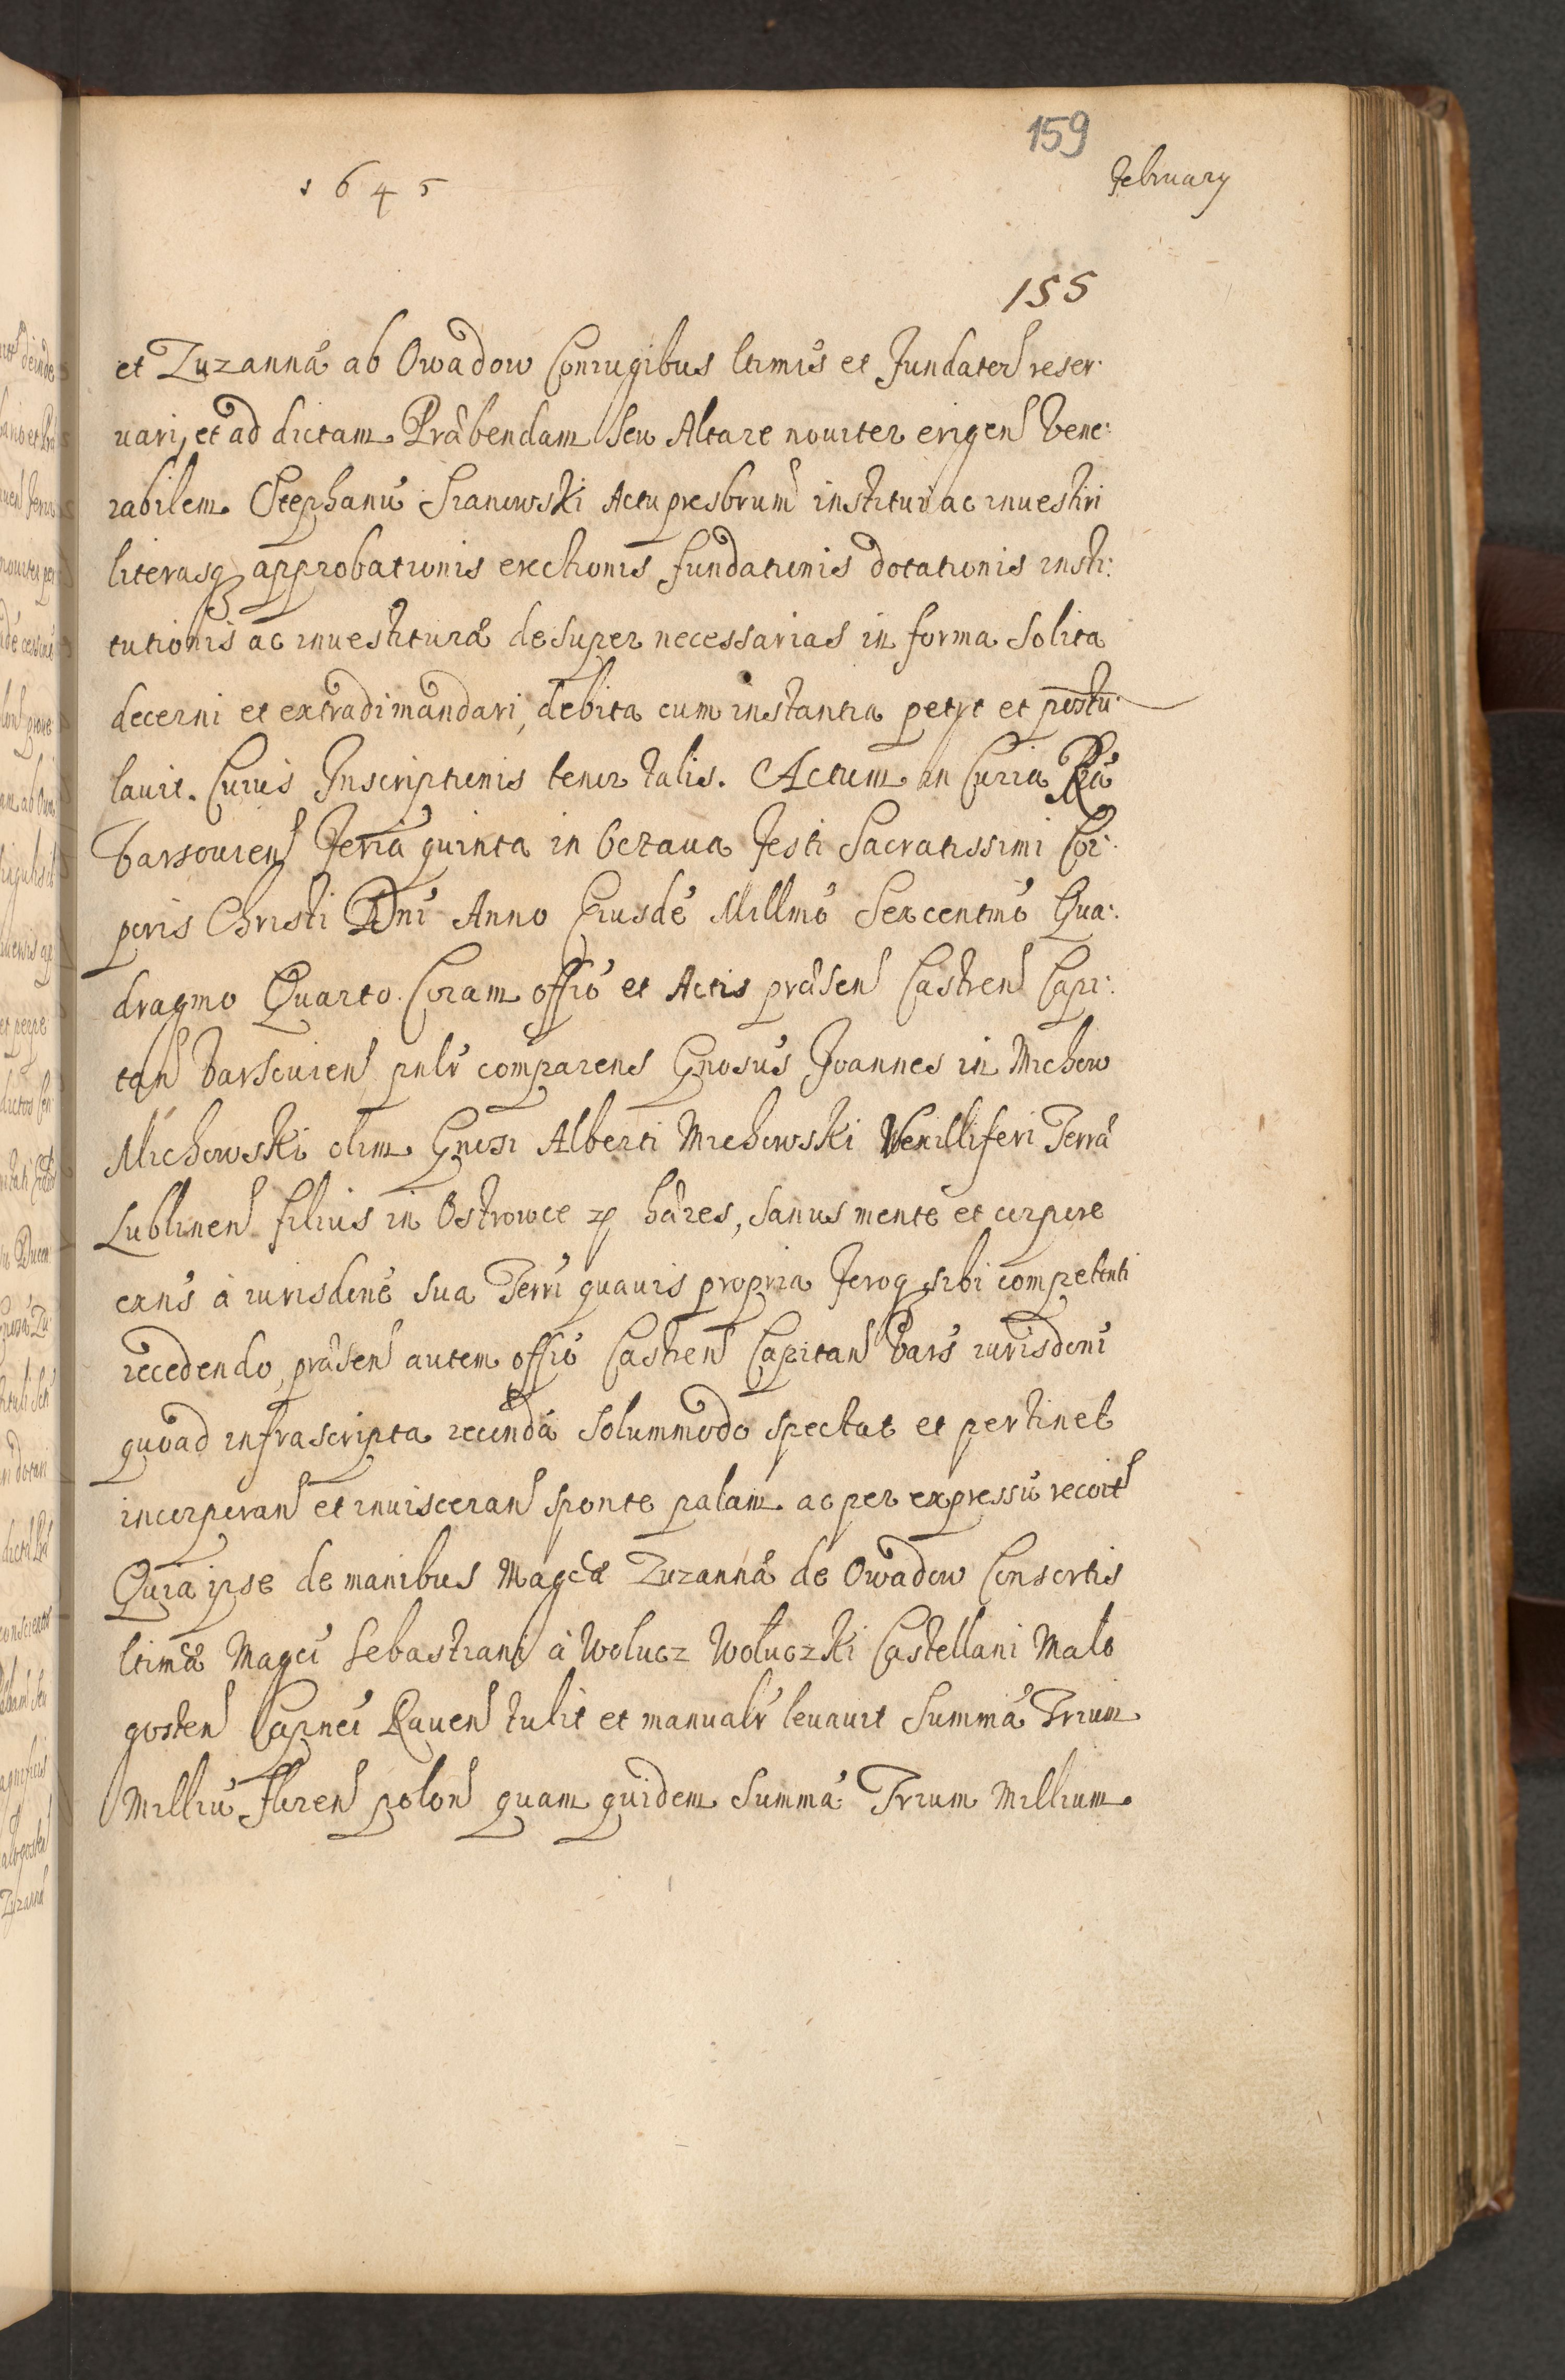 159
1645
February
155
et Zuzannæ ab Owadow Coniugibus ltimis et Fundator reser:
uari, et ad dictam Præbendam seu Altare nouiter erigen Vene:
rabilem Stephanũ Sranowski Actu presbrum institui ac inuestiri
literasq approbationis erectionis fundationis dotationis insti:
tutionis ac inuestituræ desuper necessarias in forma solita
decerni et extradi mandari, debita cum instantia petyt et postu:
lauit. Cuius Inscriptionis tenor talis. Actum in Curia Ræ
Varsouien Feria quinta in Octaua Festi Sacratissimi Cor:
poris Christi Dni Anno Eiusdẽ Millmo Sexcentmo Qua:
dragmo Quarto. Coram offio et Actis præsen Castren Capi:
tan Varsouien pnlr comparens Gnosus Joannes in Michow
Michowski olim Gnosi Alberti Michowski Vexilliferi Terræ
Lublinen filius in Ostrowce &c hæres, sanus mente et corpore
exns à iurisdone sua Terri quauis propria foroq sibi competenti
recedendo, præsen autem offio Castren Capitan Vars iurisdoni
quoad infrascripta recondã solummodo spectat et pertinet
incorporan et inuisceran sponte palam ac per expressũ recoit
Quia ipse de manibus Magcæ Zuzannæ de Owadow Consortis
ltimæ Magci Sebastiani à Wolucz Woluczki Castellani Malo
gosten Capnei Rauen tulit et manualr leuauit Summã Trium
Milliũ Floren polon quam quidem Summã Trium Millium